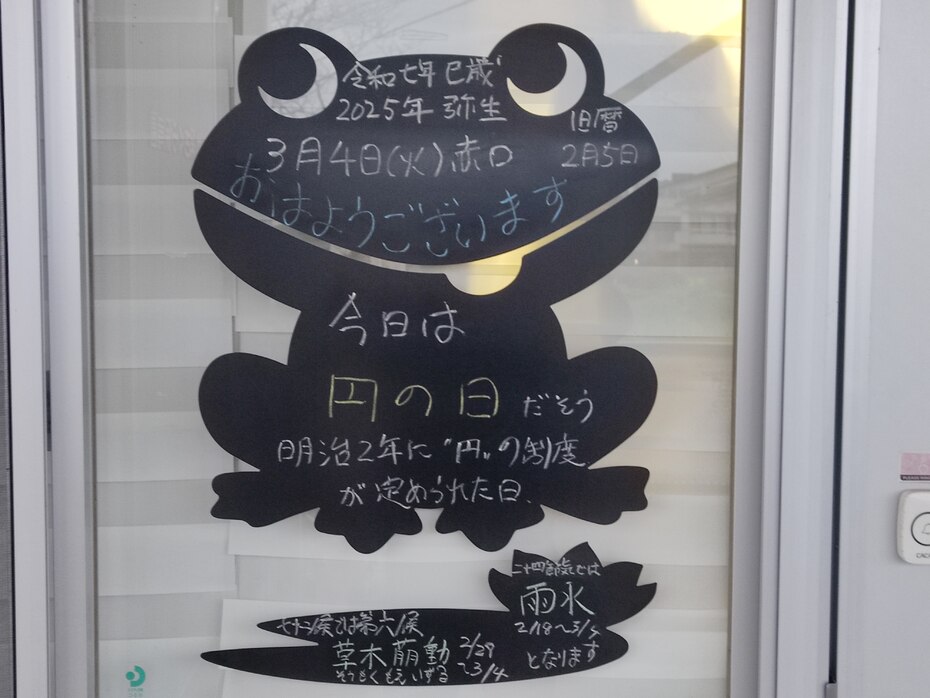 令和七年 巳歳
2025年 弥生
旧暦
3月4日(火)赤口
2月5日
おはようございます
今日は
円の日だそう
明治2年に"円"の制度
が定められた日.
二十四節気では
雨水
2/18~3/4
となります
七十二候では第六候
草木萌動 2/28
そうもくもえいずる ~3/4